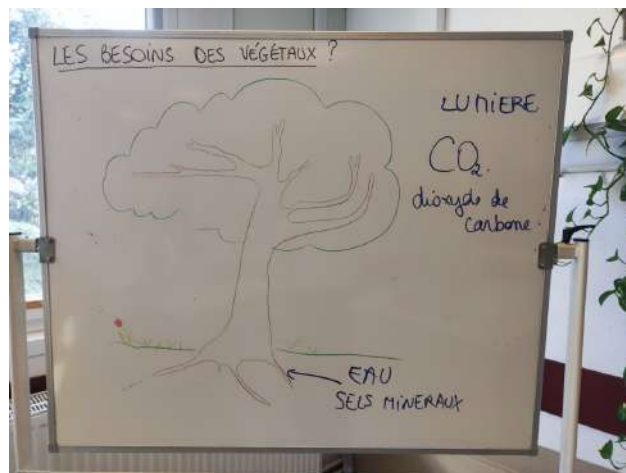 LES BESOINS DES VÉGÉTAUX ?
LUMIERE
CO2.
dioxyde de
carbone.
EAU
SELS MINERAUX